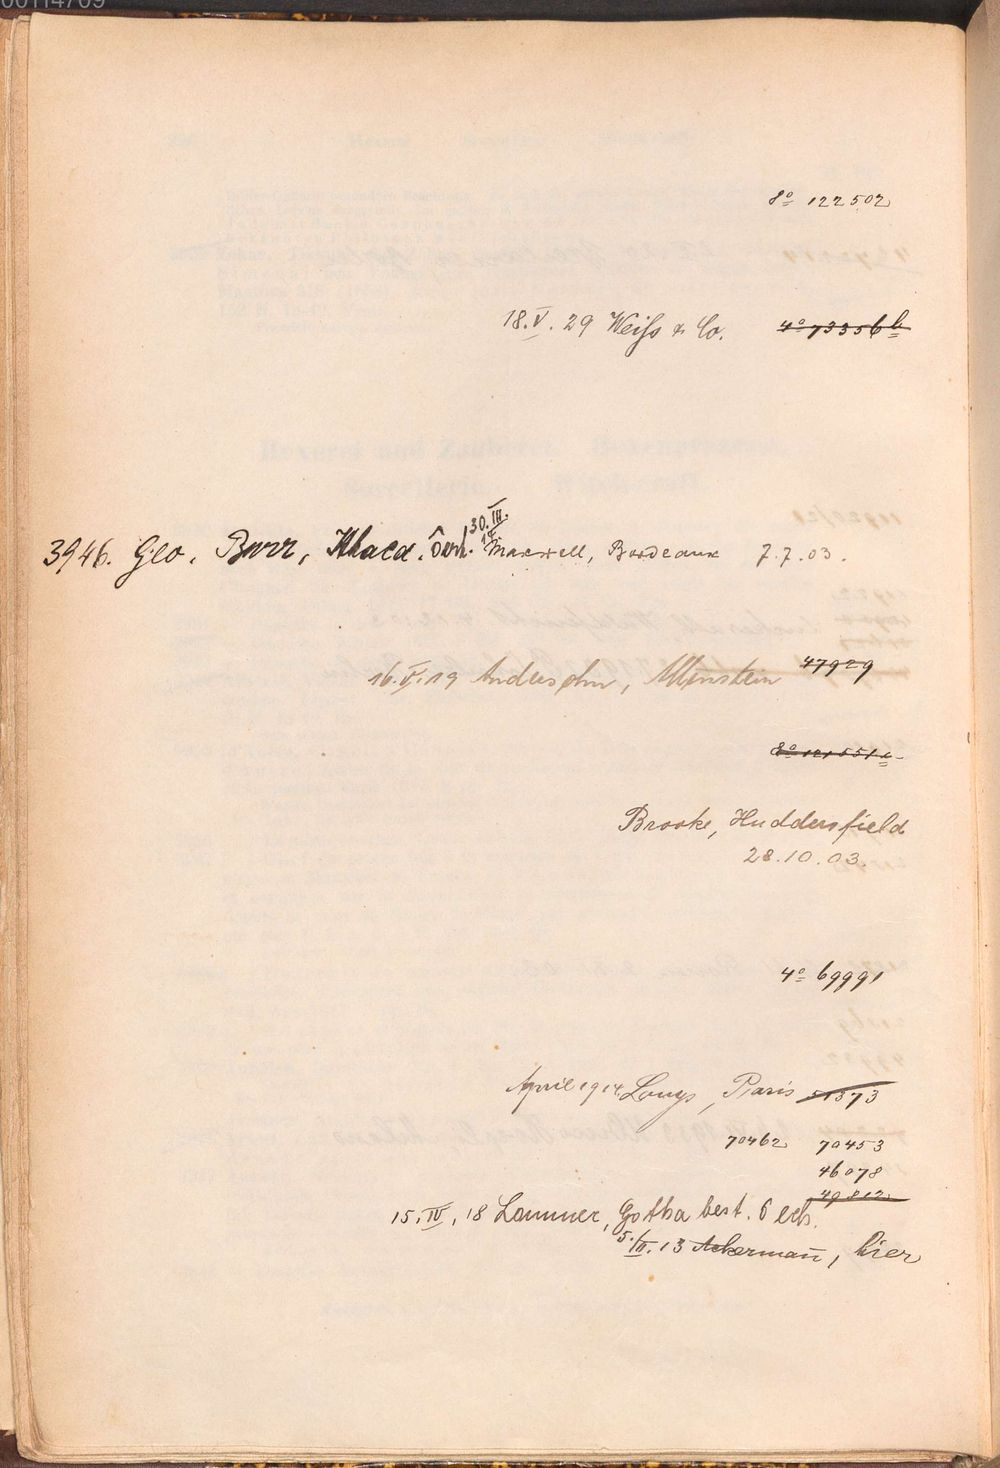 00114709
8º 122502
18.V.29 Weiss & Co. 4º 73356b
30.III.
3946. Geo. Burr, Ithaca. Maxwell, Bordeaux 7.7.03.
16.V.19 Andersohn, Allenstein 47929
8º 121551
Brooke, Huddersfield
28.10.03.
4º 69991
April 1914 Louys, Paris 51373
70462 70453
46078
49812
15.IV.18 Lammer, Gotha best.
13 Ackermann, hier